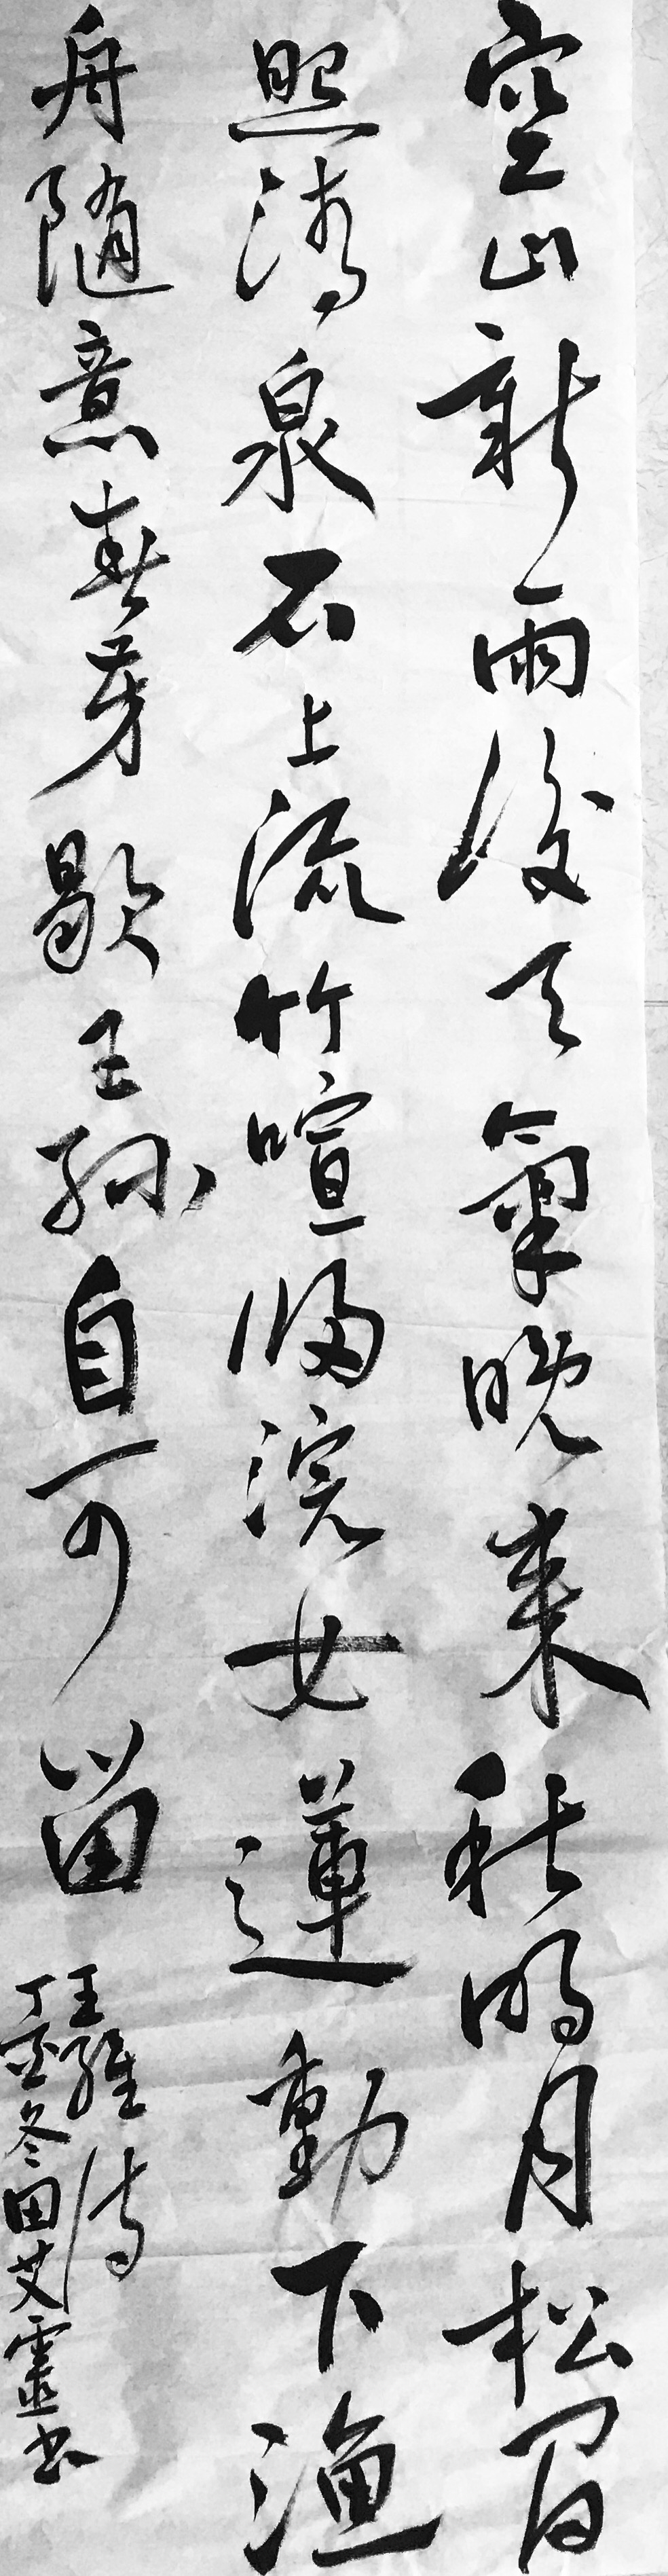 空山新雨後天氣晚來秋明月松間
照清泉石上流竹喧歸浣女蓮動下漁
舟隨意春芳歇王孫自可留
王維詩
丁酉冬田艾靈书